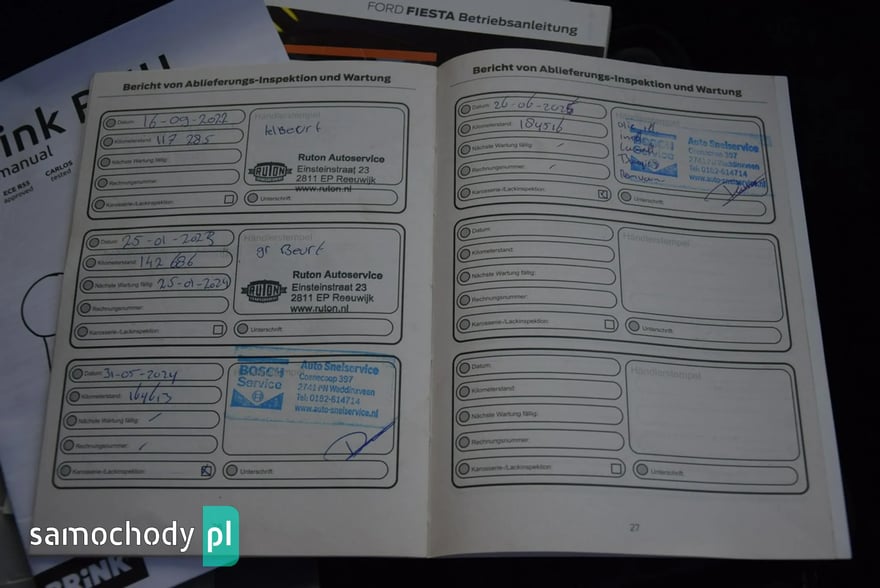 FORD FIESTA Betriebsanleitung
ink
manual
ECE R55
approved
CARLOS
tested
Bericht von Ablieferungs-Inspektion und Wartung
Datum: 16-09-2022
Kilometerstand: 117 285
Nächste Wartung fällig:
Rechnungsnummer:
Karosserie-/Lackinspektion:
Händlerstempel
kl Beurt
Ruton Autoservice
RUTON
Einsteinstraat 23
2811 EP Reeuwijk
www.ruton.nl
Unterschrift:
Datum: 25-01-2023
Kilometerstand: 142 686
Nächste Wartung fällig: 25-01-2024
Rechnungsnummer:
Karosserie-/Lackinspektion:
Händlerstempel
gr Beurt
Ruton Autoservice
RUTON
Einsteinstraat 23
2811 EP Reeuwijk
www.ruton.nl
Unterschrift:
Datum: 31-05-2024
Kilometerstand: 164613
Nächste Wartung fällig:
Rechnungsnummer:
Karosserie-/Lackinspektion:
BOSCH
Service
Auto Snelservice
Coenecoop 397
2741 PN Waddinxveen
Tel: 0182-614714
www.auto-snelservice.nl
Unterschrift:
Bericht von Ablieferungs-Inspektion und Wartung
Datum: 26-06-2025
Kilometerstand: 184516
Nächste Wartung fällig:
Rechnungsnummer:
Karosserie-/Lackinspektion:
Händlerstempel
BOSCH
Service
Auto Snelservice
Coenecoop 397
2741 PN Waddinxveen
Tel: 0182-614714
www.auto-snelservice.nl
Unterschrift:
Datum:
Kilometerstand:
Nächste Wartung fällig:
Rechnungsnummer:
Karosserie-/Lackinspektion:
Händlerstempel
Unterschrift:
Datum:
Kilometerstand:
Nächste Wartung fällig:
Rechnungsnummer:
Karosserie-/Lackinspektion:
Händlerstempel
Unterschrift:
27
samochody pl
BRINK